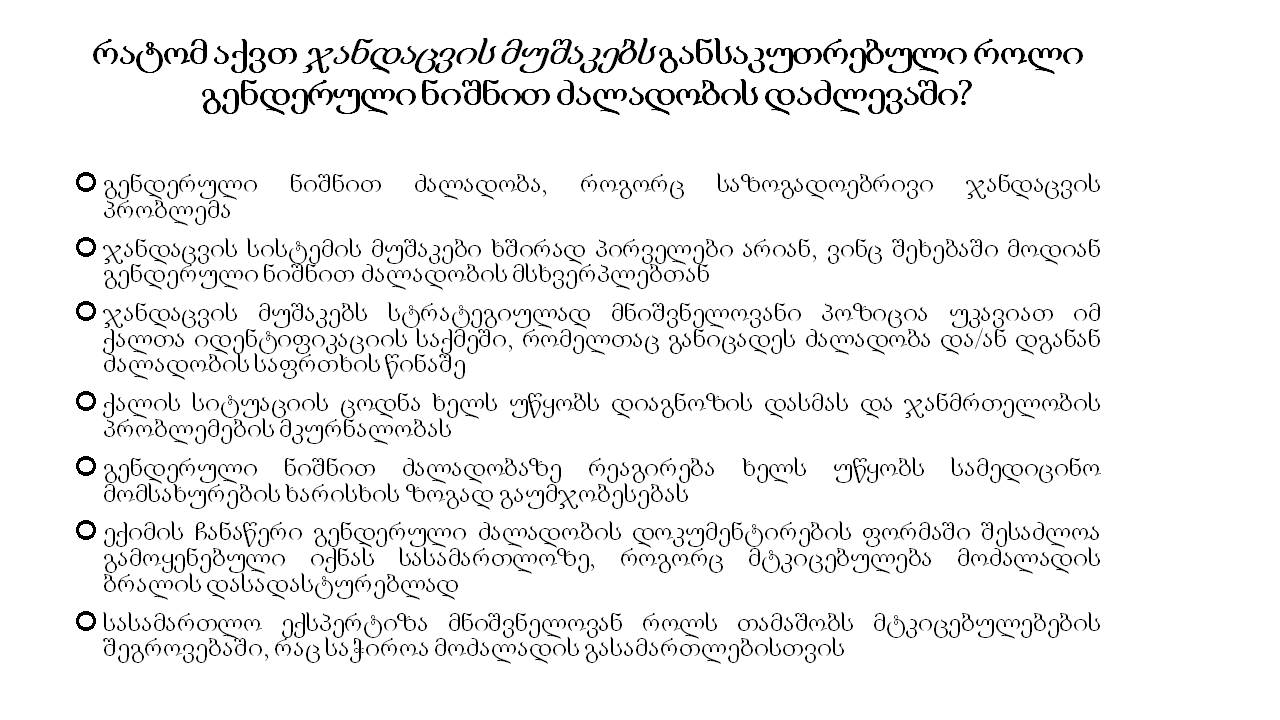 რატომ აქვთ ჯანდაცვის მუშაკებს განსაკუთრებული როლი
გენდერული ნიშნით ძალადობის დაძლევაში?
გენდერული ნიშნით ძალადობა, როგორც საზოგადოებრივი ჯანდაცვის
პრობლემა
ჯანდაცვის სისტემის მუშაკები ხშირად პირველები არიან, ვინც შეხებაში მოდიან
გენდერული ნიშნით ძალადობის მსხვერპლებთან
ჯანდაცვის მუშაკებს სტრატეგიულად მნიშვნელოვანი პოზიცია უკავიათ იმ
ქალთა იდენტიფიკაციის საქმეში, რომელთაც განიცადეს ძალადობა და/ან დგანან
ძალადობის საფრთხის წინაშე
ქალის სიტუაციის ცოდნა ხელს უწყობს დიაგნოზის დასმას და ჯანმრთელობის
პრობლემების მკურნალობას
გენდერული ნიშნით ძალადობაზე რეაგირება ხელს უწყობს სამედიცინო
მომსახურების ხარისხის ზოგად გაუმჯობესებას
ექიმის ჩანაწერი გენდერული ძალადობის დოკუმენტირების ფორმაში შესაძლოა
გამოყენებული იქნას სასამართლოზე, როგორც მტკიცებულება მოძალადის
ბრალის დასადასტურებლად
სასამართლო ექსპერტიზა მნიშვნელოვან როლს თამაშობს მტკიცებულებების
შეგროვებაში, რაც საჭიროა მოძალადის გასამართლებისთვის